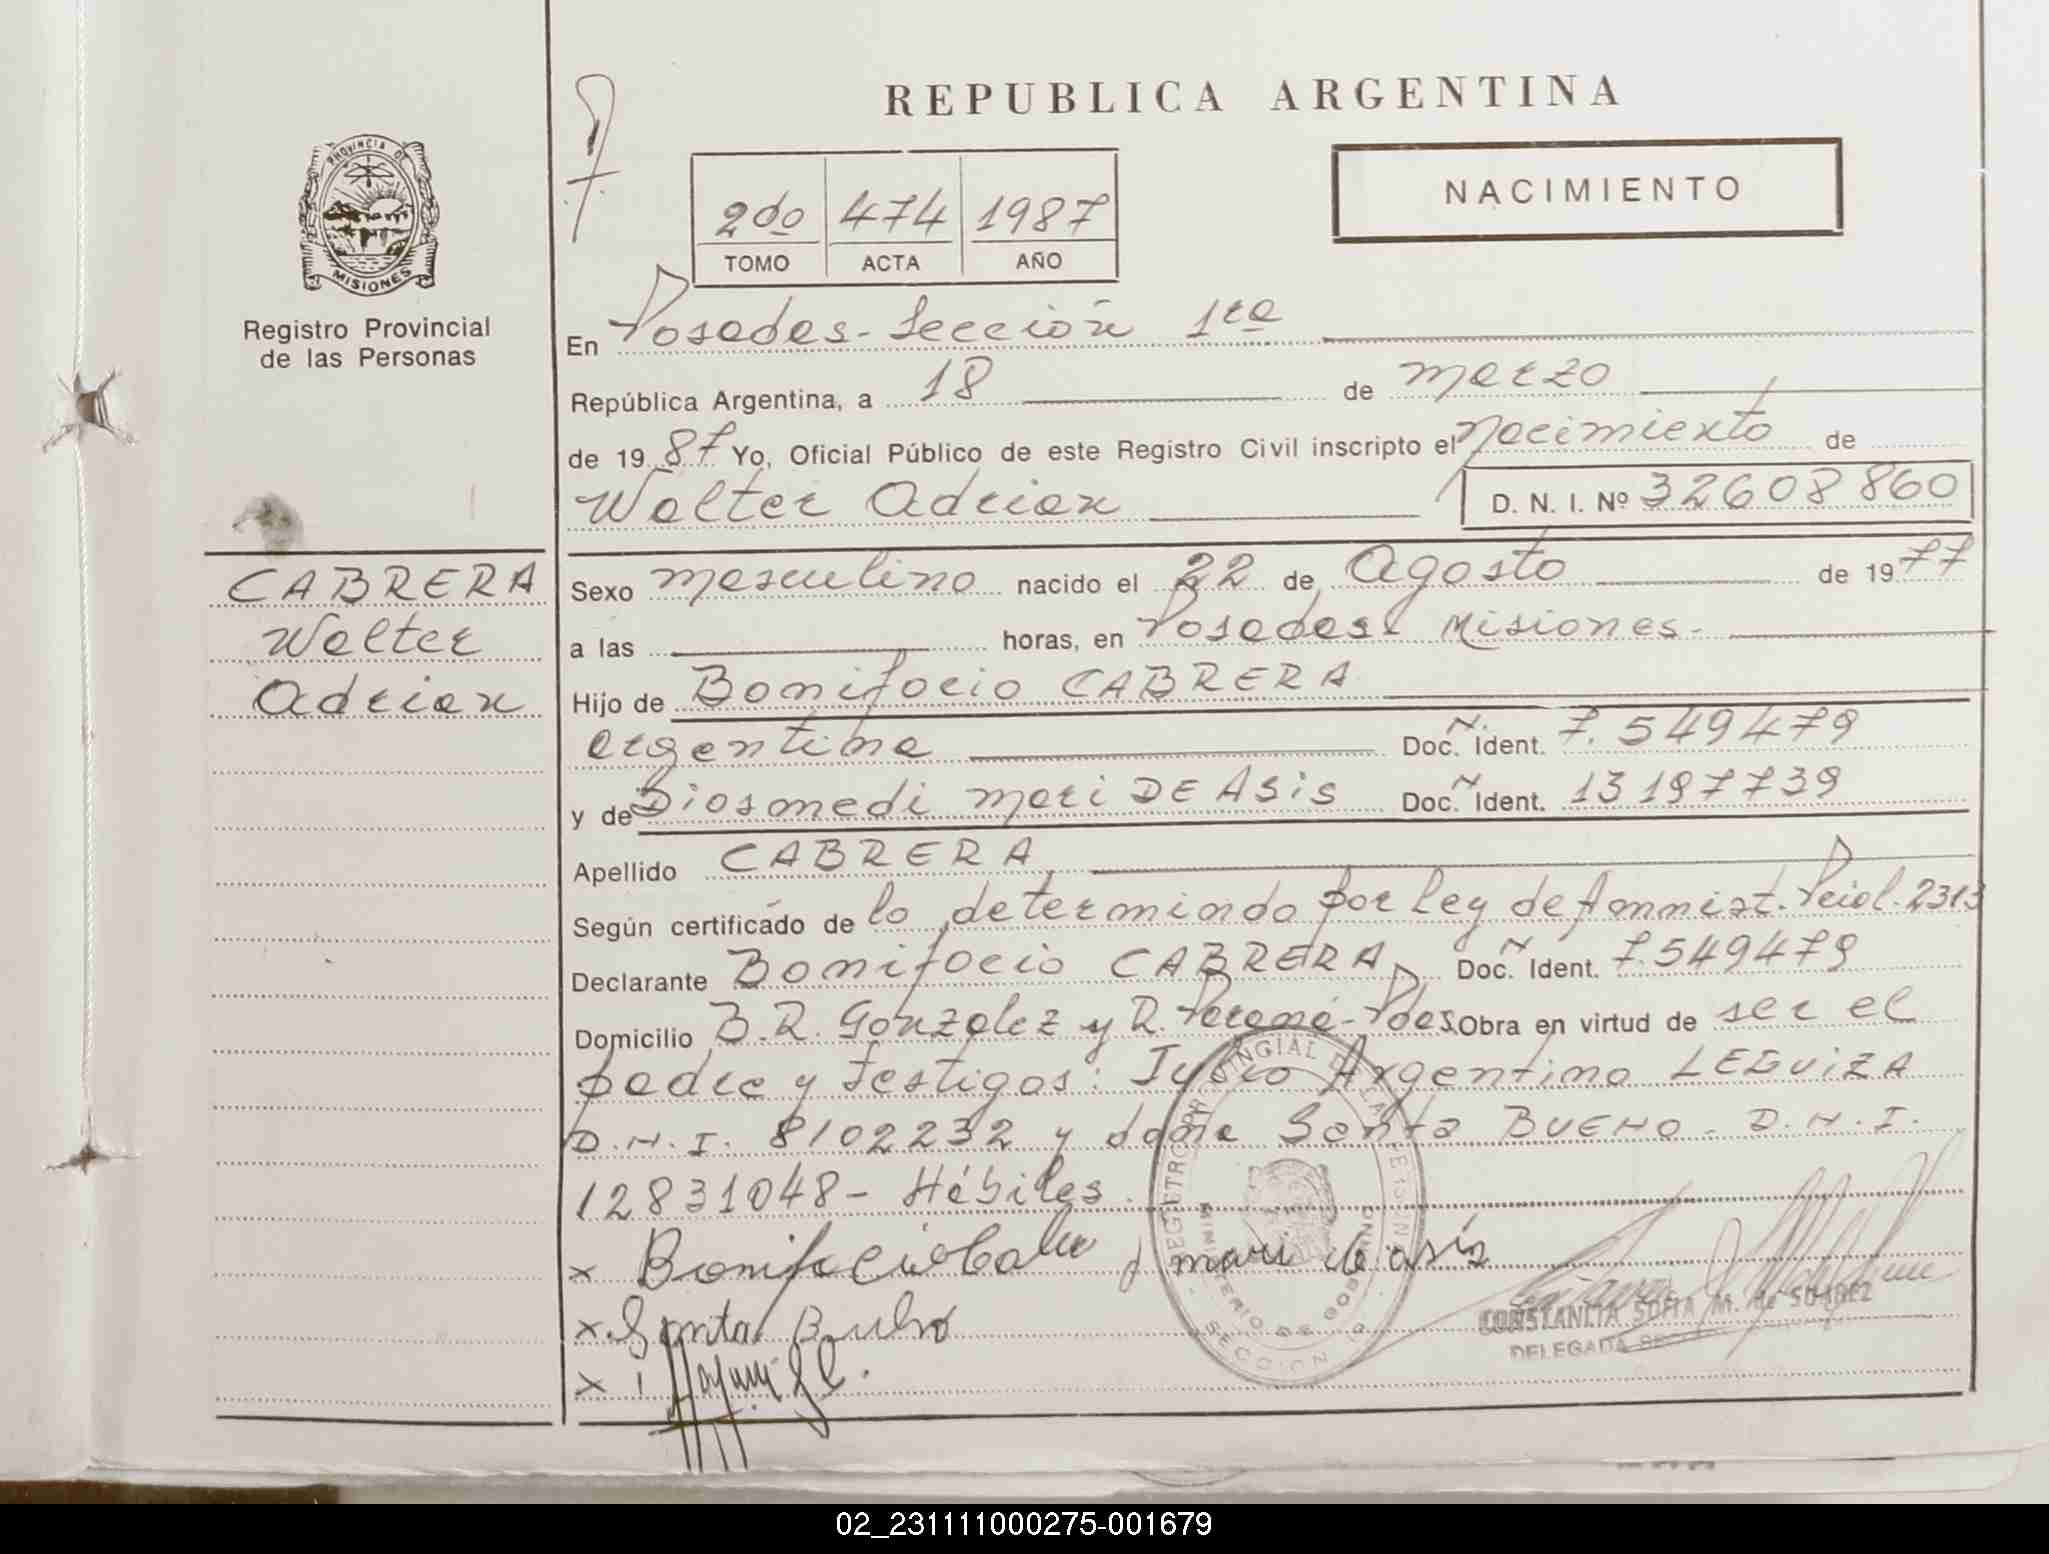 REPUBLICA ARGENTINA
NACIMIENTO
2do 474 1987
TOMO ACTA AÑO
PROVINCIA DE
MISIONES
Registro Provincial
de las Personas
CABRERA
Walter
Adrian
En Posadas - Sección 1ra
República Argentina, a 18 de marzo
de 1987 Yo, Oficial Público de este Registro Civil inscripto el Nacimiento de
Walter Adrian D. N. I. Nº 32608860
Sexo masculino nacido el 22 de Agosto de 1977
a las horas, en Posadas Misiones -
Hijo de Bonifacio CABRERA
argentina Doc. Ident. 7.549479
y de Diosmedi Mari DE ASis Doc. Ident. 13197739
Apellido CABRERA
Según certificado de lo determindo por Ley de Amnist. Pcial. 2313
Declarante Bonifacio CABRERA Doc. Ident. 7.549479
Domicilio B.R. Gonzalez y R. Perené - Pdas. Obra en virtud de ser el
padre y testigos: Julio Argentino LEGUIZA
D.N.I. 8102232 y doña Santa BUENO - D.N.I.
12831048 - Hábiles
x Bonifacio Cabre mari de asís
x Santa Bueno
x
MINISTERIO DE GOBIERNO
SECCION
CONSTANCIA SOFIA M. de SUAREZ
DELEGADA
02_231111000275-001679